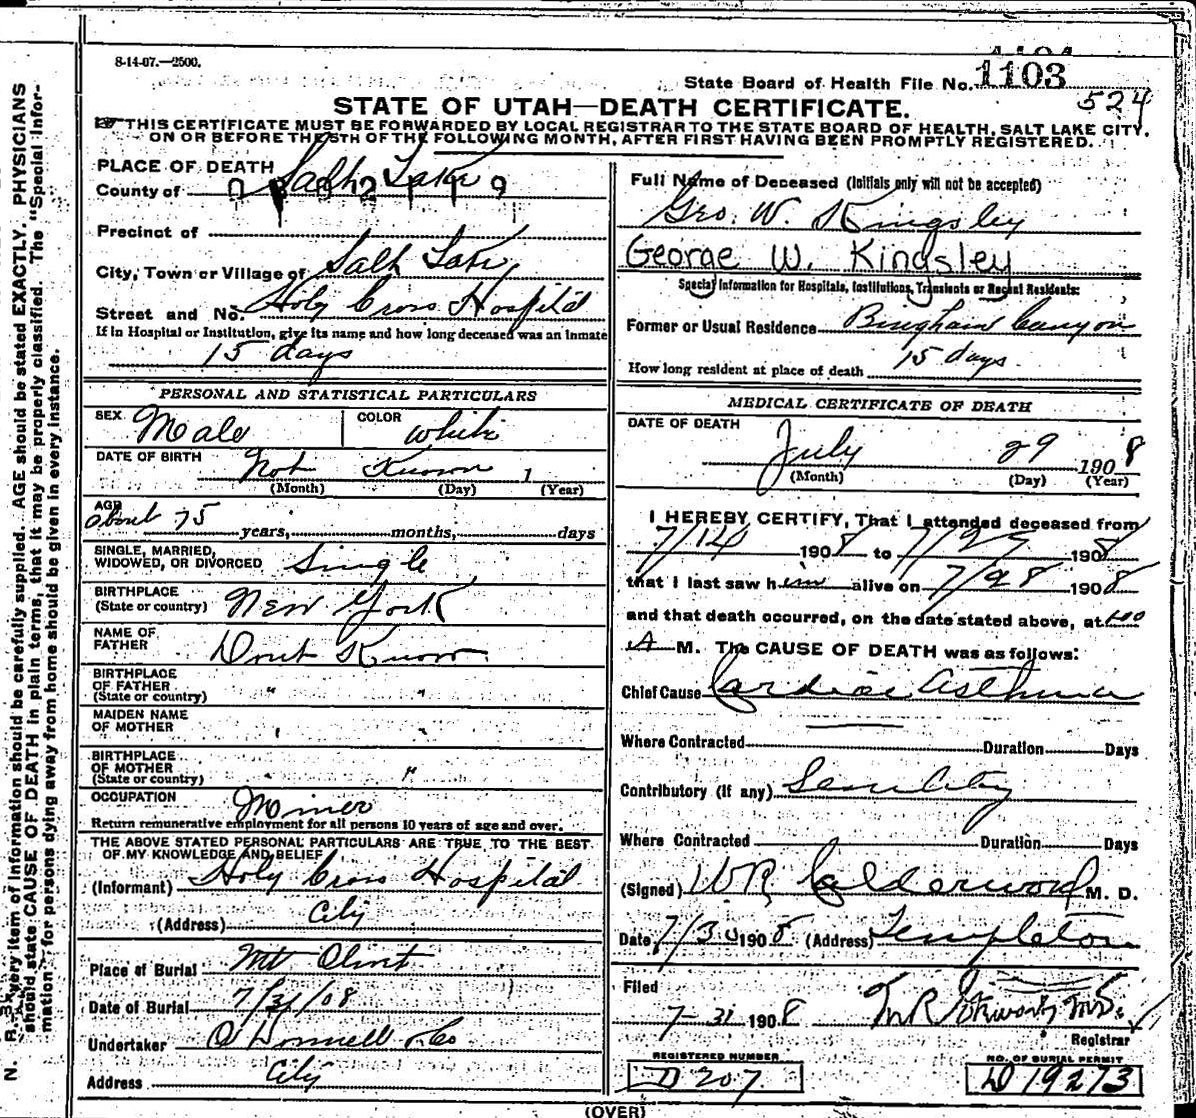 8-14-07.—2500.
State Board of Health File No. 1103
524
STATE OF UTAH—DEATH CERTIFICATE.
THIS CERTIFICATE MUST BE FORWARDED BY LOCAL REGISTRAR TO THE STATE BOARD OF HEALTH, SALT LAKE CITY,
ON OR BEFORE THE 5TH OF THE FOLLOWING MONTH, AFTER FIRST HAVING BEEN PROMPTLY REGISTERED.
PLACE OF DEATH
County of Salt Lake
Precinct of
City, Town or Village of Salt Lake
Street and No. Holy Cross Hospital
If in Hospital or Institution, give its name and how long deceased was an inmate
15 days
PERSONAL AND STATISTICAL PARTICULARS
SEX Male COLOR White
DATE OF BIRTH Not Known 1
(Month) (Day) (Year)
AGE about 75 years, months, days
SINGLE, MARRIED,
WIDOWED, OR DIVORCED Single
BIRTHPLACE
(State or country) New York
NAME OF
FATHER Dont Know
BIRTHPLACE
OF FATHER
(State or country) " "
MAIDEN NAME
OF MOTHER
BIRTHPLACE
OF MOTHER
(State or country) "
OCCUPATION Miner
Return remunerative employment for all persons 10 years of age and over.
THE ABOVE STATED PERSONAL PARTICULARS ARE TRUE TO THE BEST
OF MY KNOWLEDGE AND BELIEF
(Informant) Holy Cross Hospital
(Address) City
Place of Burial Mt Olivet
Date of Burial 7/31/08
Undertaker O'Donnell & Co
Address City
Full Name of Deceased (Initials only will not be accepted)
Geo. W. Kingsley
George W. Kingsley
Special Information for Hospitals, Institutions, Transients or Recent Residents:
Former or Usual Residence Bingham Canyon
How long resident at place of death 15 days
MEDICAL CERTIFICATE OF DEATH
DATE OF DEATH
July 29 1908
(Month) (Day) (Year)
I HEREBY CERTIFY, That I attended deceased from
7/14 1908 to 7/29 1908
that I last saw him alive on 7/28 1908
and that death occurred, on the date stated above, at
A M. The CAUSE OF DEATH was as follows:
Chief Cause Cardiac Asthma
Where Contracted Duration Days
Contributory (if any) Senility
Where Contracted Duration Days
(Signed) W R Calderwood M. D.
Date 7/30 1908 (Address) Templeton
Filed
7-31 1908 M.D.
Registrar
REGISTERED NUMBER
D 207
NO. OF BURIAL PERMIT
D 19273
(OVER)
N. B. Every item of information should be carefully supplied. AGE should be stated EXACTLY. PHYSICIANS
should state CAUSE OF DEATH in plain terms, that it may be properly classified. The "Special Infor-
mation" for persons dying away from home should be given in every instance.